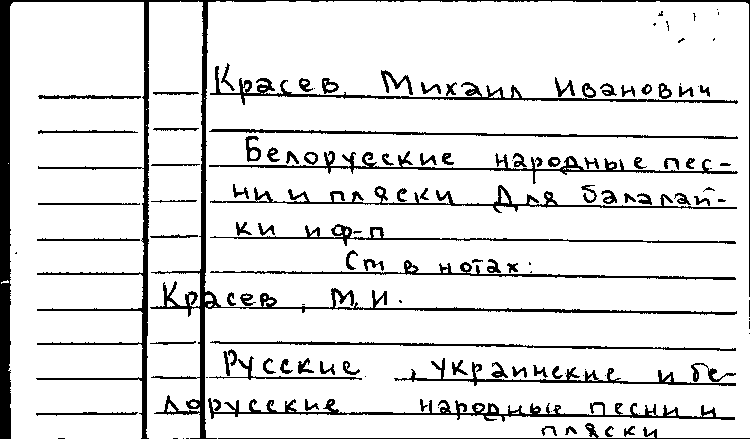 Красев, Михаил Иванович
Белорусские народные пес-
ни и пляски Для балалай-
ки и ф-п
См в нотах:
Красев, М. И.
Русские, украинские и бе-
лорусские народные песни и
пляски